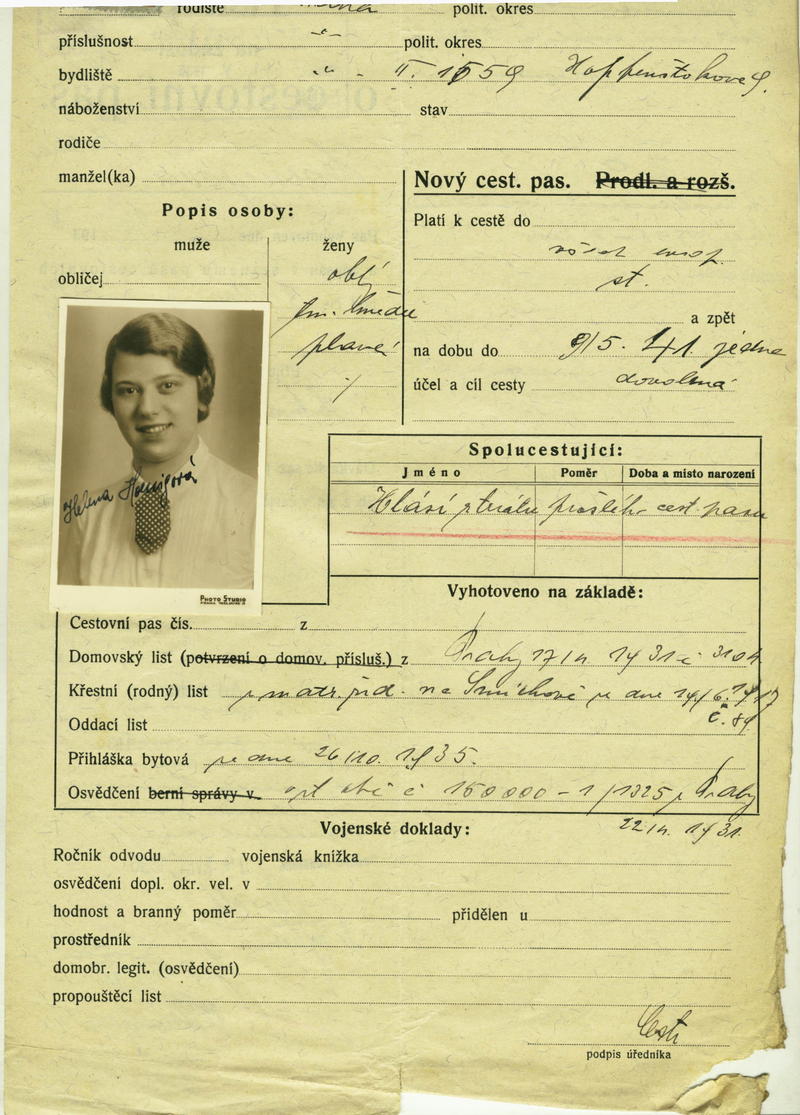 rodiště polit. okres
příslušnost -„- polit. okres
bydliště „ - II. 1559
náboženství stav
rodiče
manžel(ka)
Nový cest. pas. Prodl. a rozš.
Popis osoby:
Platí k cestě do
muže ženy
všech evrop.
obličej oblý
st.
tm. hnědé
a zpět
plavé
na dobu do 9/5. 41. jedna
účel a cíl cesty dovolená
Helena Honigová
PHOTO STUDIO
Spolucestující:
Jméno Poměr Doba a místo narození
Hlásí ztrátu prošlého cest. pasu
Vyhotoveno na základě:
Cestovní pas čís. z
Domovský list (potvrzení o domov. přísluš.) z Prahy 1931 č 3104
Křestní (rodný) list z matr. žid. na Smíchově ze dne 14/6. 1917
č. 84
Oddací list
Přihláška bytová ze dne 26/10. 1935.
Osvědčení berní správy v. č 150000-1/1325 z Prahy
1931.
Vojenské doklady:
Ročník odvodu vojenská knížka
osvědčení dopl. okr. vel. v
hodnost a branný poměr přidělen u
prostředník
domobr. legit. (osvědčení)
propouštěcí list
podpis úředníka